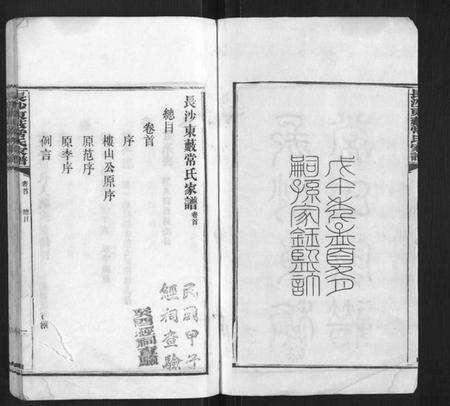 戊午季春月
嗣孫家鈺監訂
長沙東蓺常氏家譜
長沙東蓺常氏家譜 卷首
總目
卷首
序
樓山公原序
原范序
原李序
例言
民國甲子
經祠查驗
卷首 總目